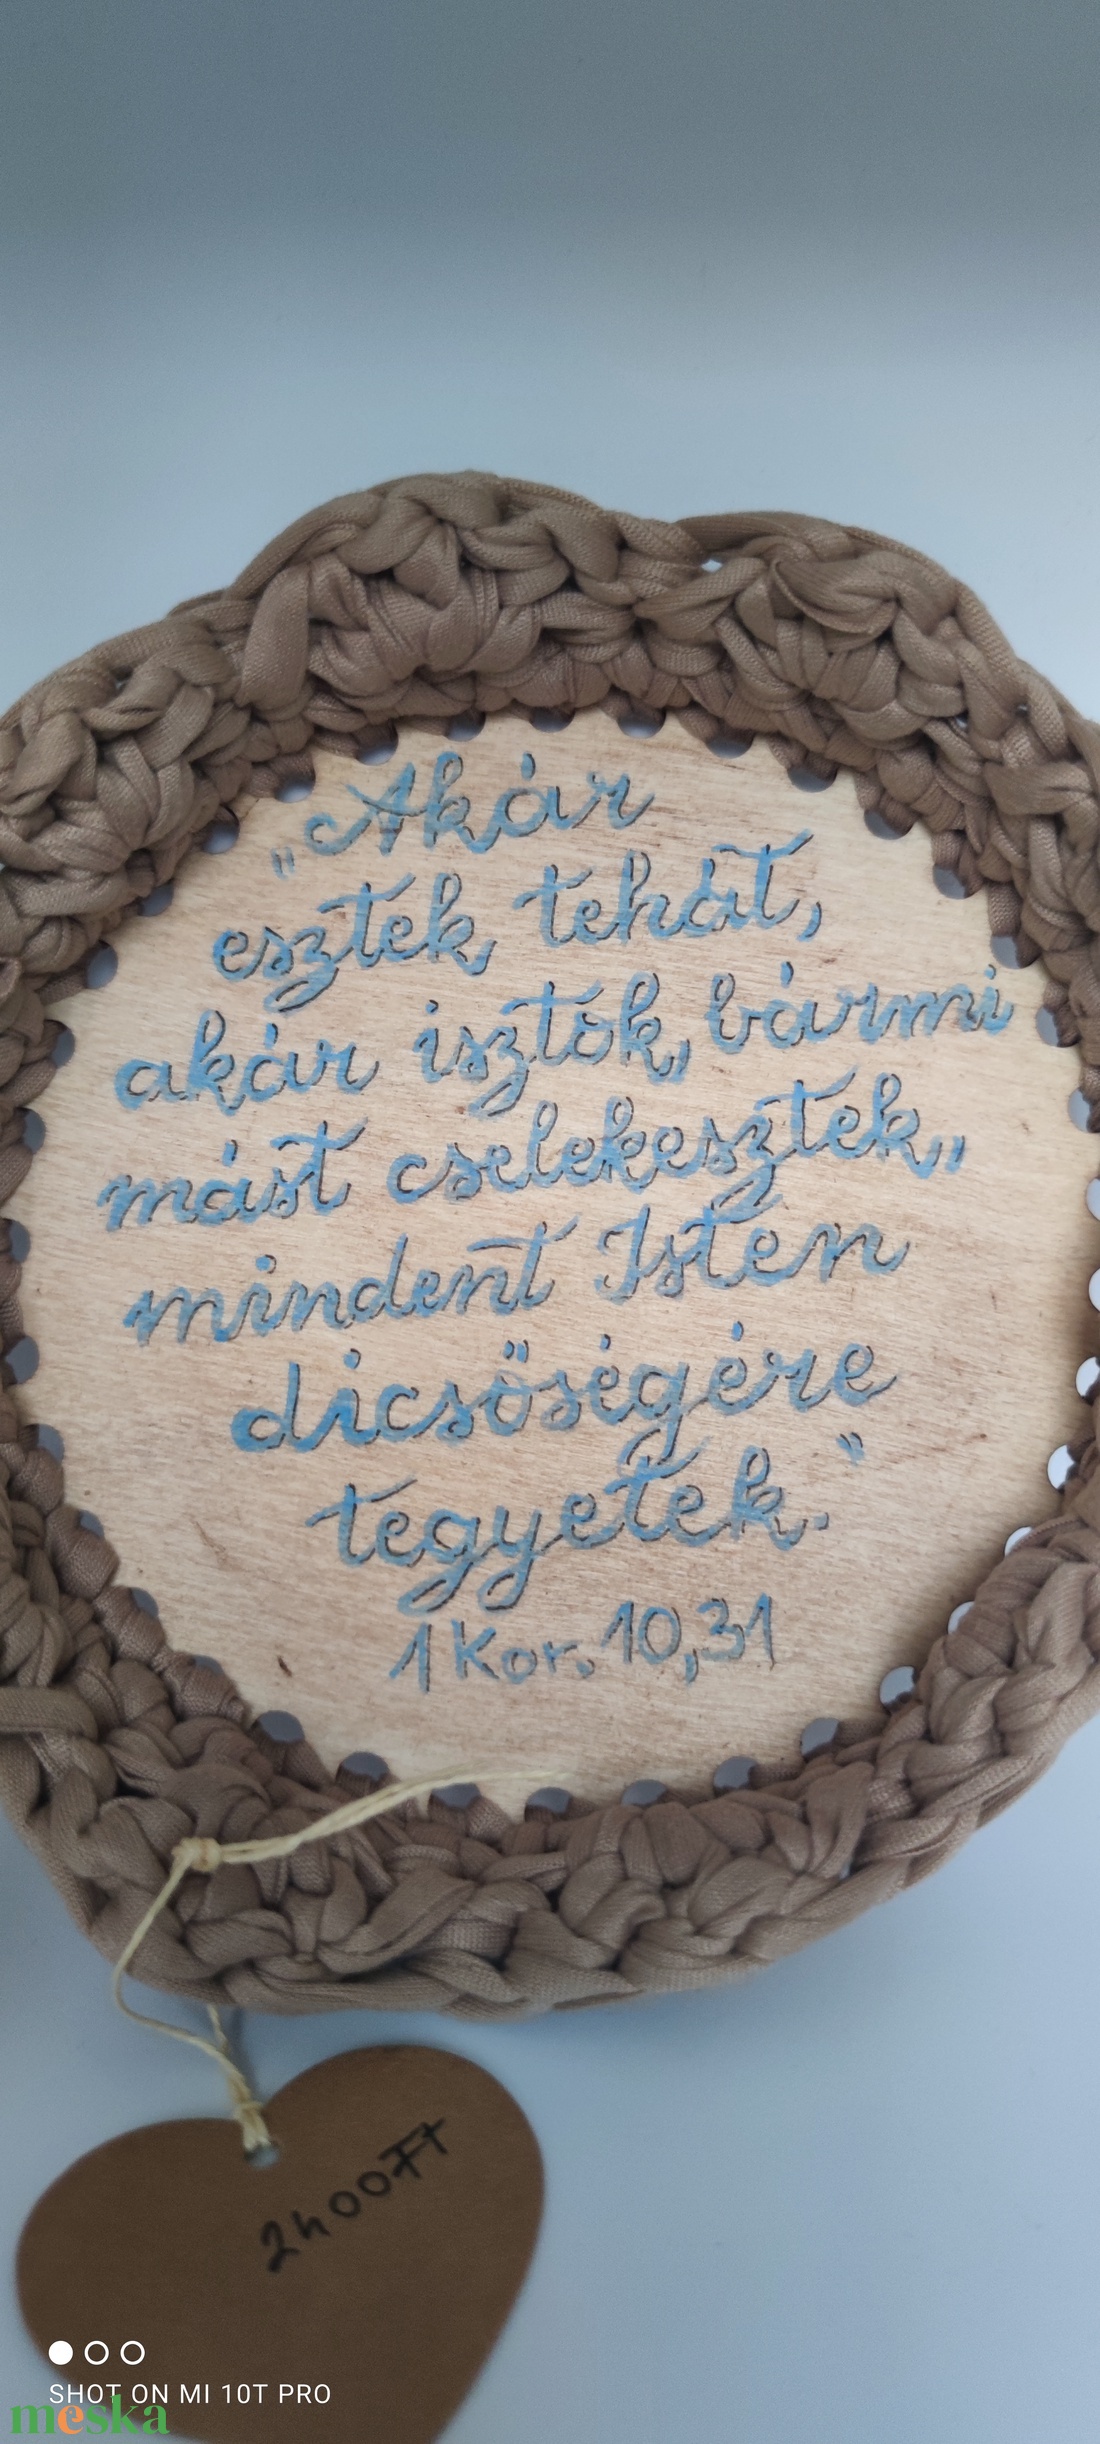 „Akár
esztek tehát,
akár isztok, bármi
mást cselekesztek,,
mindent Isten
dicsőségére
tegyetek.”
1 Kor. 10,31
2400Ft
SHOT ON MI 10T PRO
meska